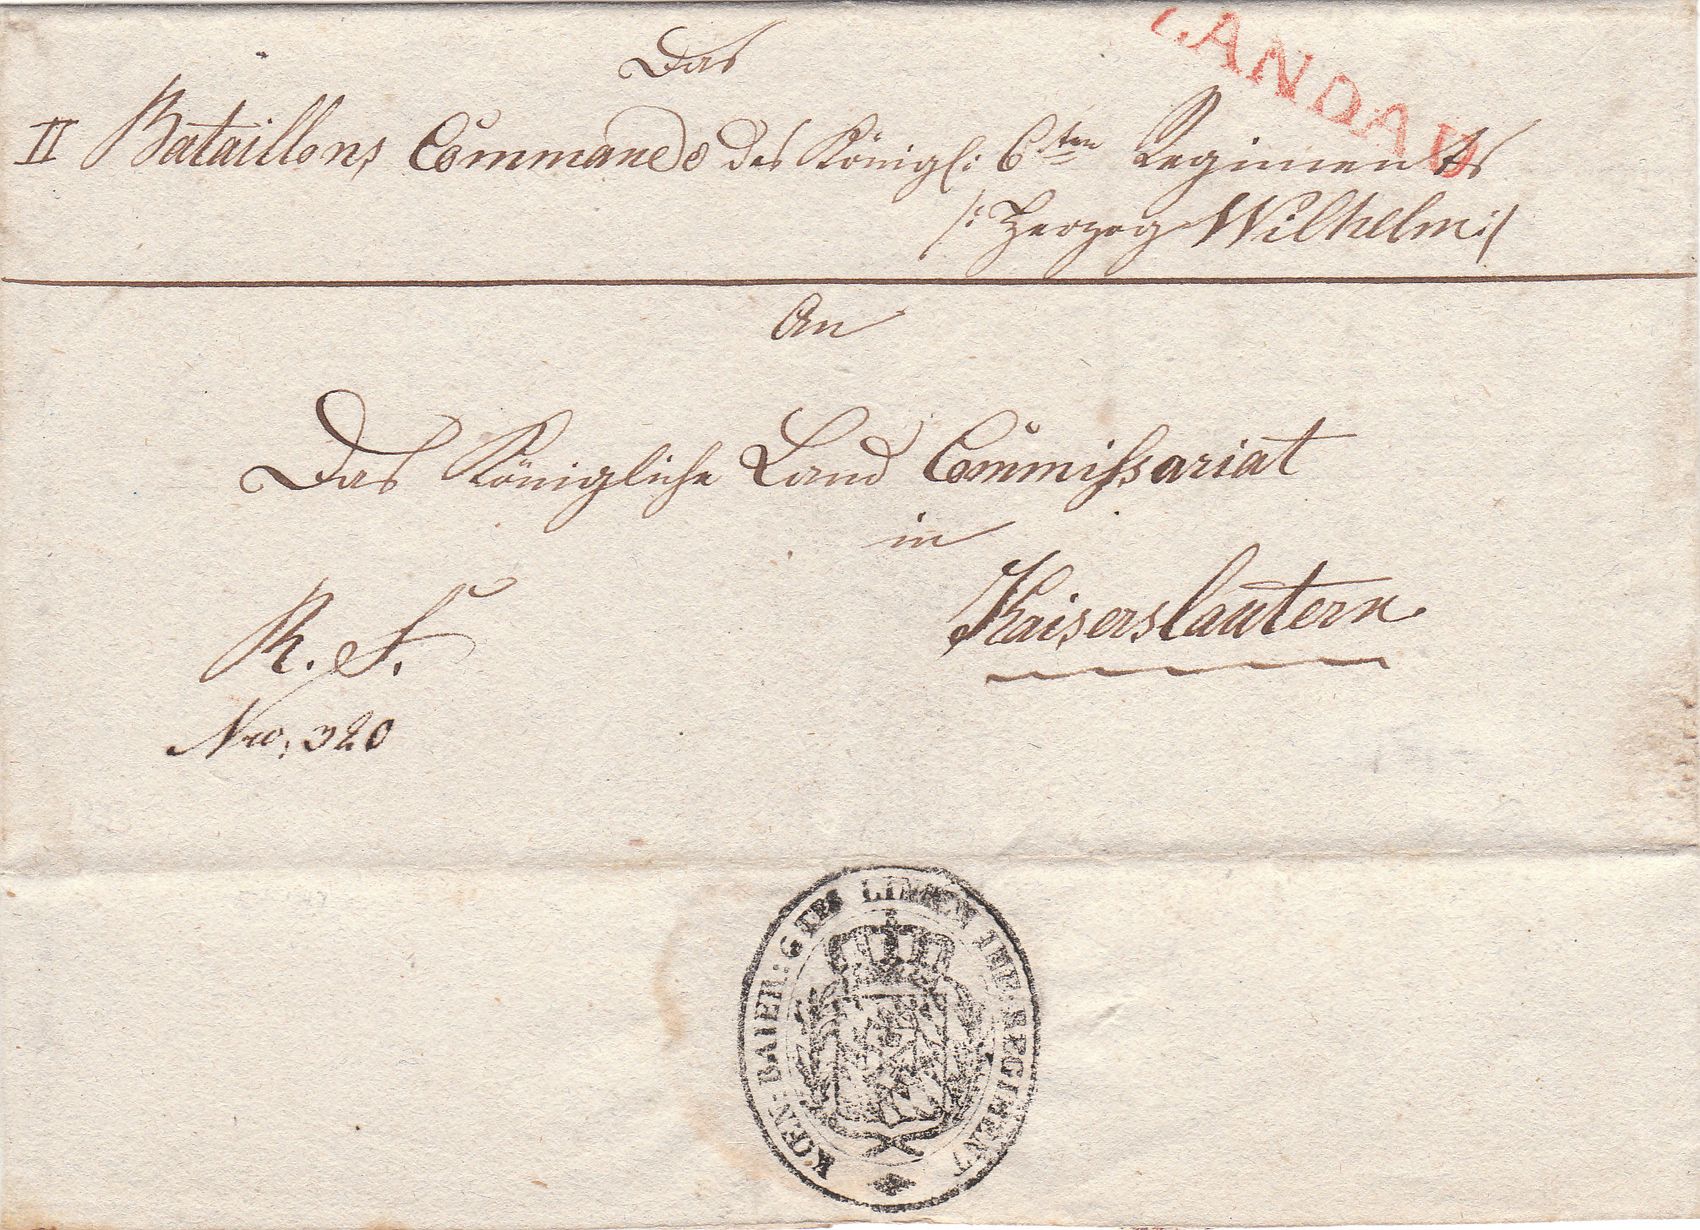 LANDAU
Das
II Bataillons Commando des Königl: 6ten Regiments
/: Herzog Wilhelm :/
An
Das Königliche Land Commißariat
in
Kaiserslautern
R. S.
Nro. 320
KOEN: BAIER: 6TES LINIEN INF: REGIMENT